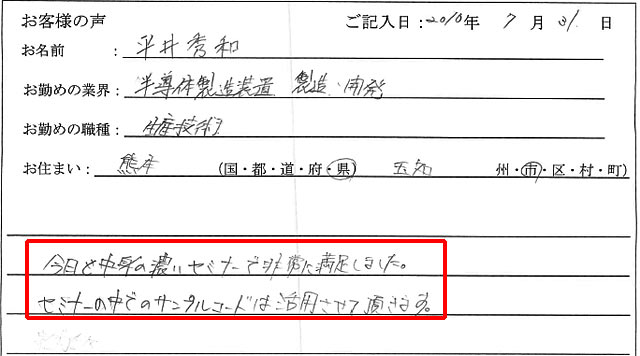 お客様の声 ご記入日：2010年 7月 31日
お名前 ： 平井秀和
お勤めの業界： 半導体製造装置 製造・開発
お勤めの職種： 生産技術
お住まい： 熊本 (国・都・道・府・県) 玉名 州・市・区・村・町)
今日も中身の濃いセミナーで非常に満足しました。
セミナーの中でのサンプルコードは活用させて頂きます。